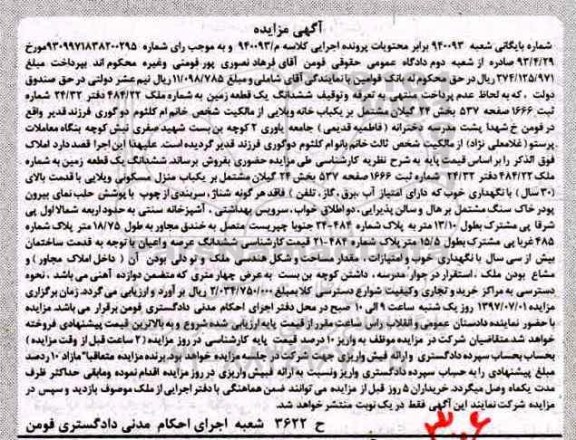 آگهی مزایده
شماره بایگانی شعبه ۹۴۰۰۹۳ برابر محتویات پرونده اجرایی کلاسه م/۹۴۰۰۹۳ و به موجب رای شماره ۹۳۰۹۹۷۱۸۳۸۲۰۰۲۹۵مورخ
۹۳/۴/۲۹ صادره از شعبه دوم دادگاه عمومی حقوقی فومن آقای فرهاد نصوری پور فومنی وغیره محکوم اند بپرداخت مبلغ
۲۷۴/۱۳۵/۹۷۱ ریال در حق محکوم له بانک قوامین با نمایندگی آقای شاملی و مبلغ ۱۱/۰۹۸/۷۸۵ ریال نیم عشر دولتی در حق صندوق
دولت ، که به لحاظ عدم پرداخت ،منتهی به تعرفه و توقیف ششدانگ یک قطعه زمین به شماره ملک ۴۸۴/۲۲ دفتر ۲۴/۳۲ شماره
ثبت ۱۶۶۶ صفحه ۵۳۷ بخش ۲۴ گیلان مشتمل بر یکباب خانه ویلایی از مالکیت شخص خانم ام کلثوم دوگوری فرزند قدیر واقع
در فومن خ شهدا پشت مدرسه دخترانه ( فاطمیه قدیمی ) جامعه یاوری ۲ کوچه بن بست شهید صفری نبش کوچه بنگاه معاملات
پرستو (غلامعلی نژاد) از مالکیت شخص ثالث خانم بانو ام کلثوم دوگوری فرزند قدیر گردیده است. علیهذا این اجرا قصد دارد املاک
فوق الذکر را بر اساس قیمت پایه به شرح نظریه کارشناسی طی مزایده حضوری بفروش برساند. ششدانگ یک قطعه زمین به شماره
ملک ۴۸۴/۲۲ دفتر ۲۴/۳۲ شماره ثبت ۱۶۶۶ صفحه ۵۳۷ بخش ۲۴ گیلان مشتمل بر یکباب منزل مسکونی ویلایی با قدمت بالای
(۳۰ سال ) با نگهداری خوب که دارای امتیاز آب ،برق ، گاز ، تلفن ) فاقد هر گونه شناژ ، سربندی از چوب با پوشش حلب نمای بیرون
پودر خاک سنگ مشتمل بر هال و سالن پذیرایی ، دو اطاق خواب ، سرویس بهداشتی ، آشپزخانه سنتی به حدود اربعه شمالا اول پی
شرقا پی مشترک بطول ۱۳/۱۰ متر به پلاک شماره ۴۸۴-۲۴ جنوبا چپرست متصل به خندق مجاور به طول ۱۸/۷۵ متر پلاک شماره
۴۸۵ غربا پی مشترک بطول ۱۵/۵ متر پلاک شماره ۴۸۴-۲۱ قیمت کارشناسی ششدانگ عرصه و اعیان با توجه به قدمت ساختمان
بیش از سی سال با نگهداری خوب و امتیازات ، مقدار مساحت و شکل هندسی ملک و تو دلی بودن آن ( داخل املاک مجاور ) و
مشاع بودن ملک ، استقرار در جوار مدرسه ، داشتن کوچه بن بست به عرض چهار متری که متضمن دوازده آهنی می باشد ، نحوه
دسترسی به مراکز خرید و تجاری وکیفیت شوارع دسترسی کلا بمبلغ ۲/۰۳۴/۷۵۰/۰۰۰ ریال بر آورد و ارزیابی می گردد. زمان برگزاری
مزایده ۱۳۹۷/۰۷/۰۱ روز یک شنبه ساعت ۹ الی ۱۰ صبح در محل دفتر اجرای احکام مدنی دادگستری فومن برقرار می باشد. مزایده
با حضور نماینده دادستان عمومی و انقلاب راس ساعت مقرر از قیمت پایه ارزیابی شده شروع و به بالاترین قیمت پیشنهادی فروخته
خواهد شد.متقاضیان شرکت در مزایده موظف به واریز ۱۰ درصد قیمت پایه کارشناسی در روز مزایده ( ۲ ساعت قبل از وقت مزایده )
بحساب بحساب سپرده دادگستری و ارائه فیش واریزی جهت شرکت در جلسه مزایده خواهد بود.برنده مزایده متعاقبا" مازاد ۱۰ رصد
مبلغ پیشنهادی را به حساب سپرده دادگستری واریز ونسبت به ارائه فیبیش واریزی در روز مزایده اقدام نموده ومابقی حداکثر ظرف
مدت یکماه وصل میگردد. خریداران ۵ روز قبل از مزایده می توانند ضمن هماهنگی با دفتر اجرایی از ملک موصوف بازدید و سپس در
مزایده شرکت نمایند این آگهی فقط در یک نوبت منتشر خواهد شد.
ح ۳۶۲۲ شعبه اجرای احکام مدنی دادگستری فومن